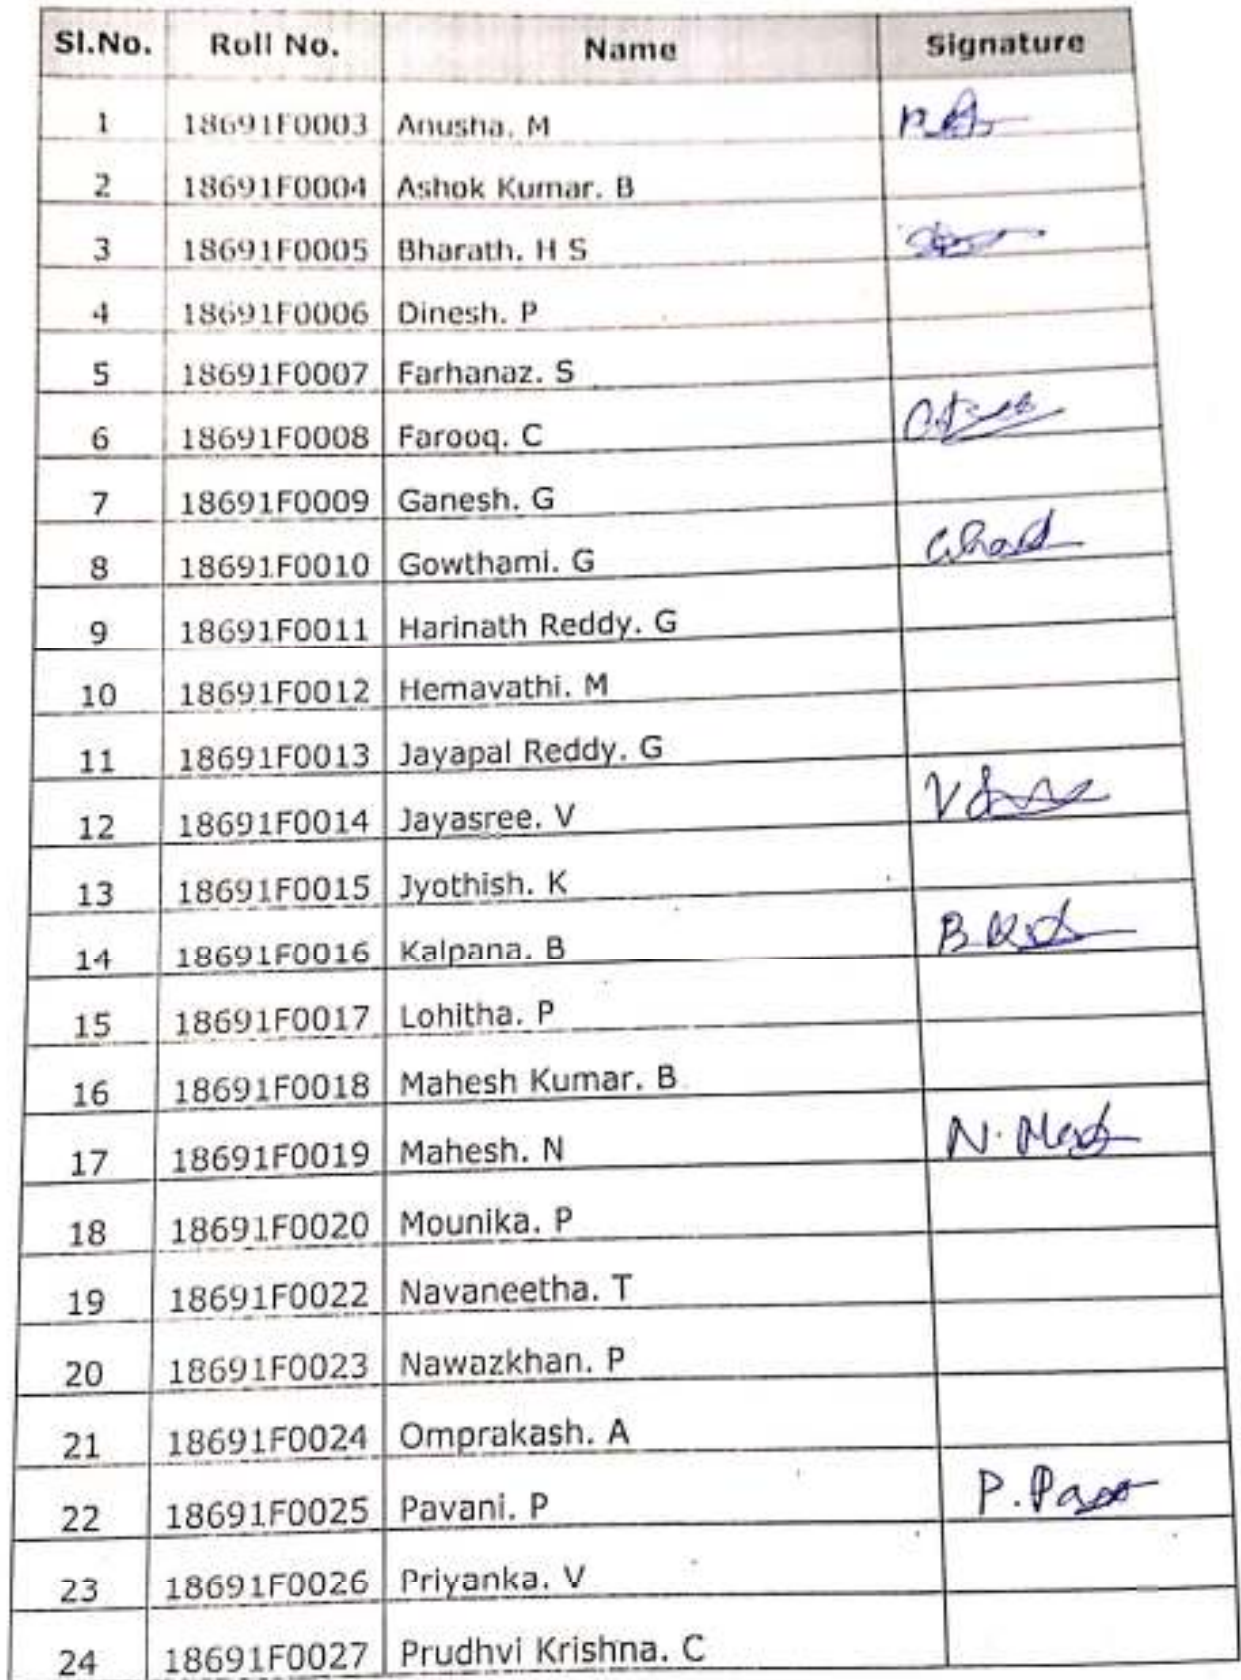 Sl.No. Roll No. Name Signature
1 18691F0003 Anusha. M
2 18691F0004 Ashok Kumar. B
3 18691F0005 Bharath. H S
4 18691F0006 Dinesh. P
5 18691F0007 Farhanaz. S
6 18691F0008 Farooq. C
7 18691F0009 Ganesh. G
8 18691F0010 Gowthami. G
9 18691F0011 Harinath Reddy. G
10 18691F0012 Hemavathi. M
11 18691F0013 Jayapal Reddy. G
12 18691F0014 Jayasree. V
13 18691F0015 Jyothish. K
14 18691F0016 Kalpana. B
15 18691F0017 Lohitha. P
16 18691F0018 Mahesh Kumar. B
17 18691F0019 Mahesh. N
18 18691F0020 Mounika. P
19 18691F0022 Navaneetha. T
20 18691F0023 Nawazkhan. P
21 18691F0024 Omprakash. A
22 18691F0025 Pavani. P
23 18691F0026 Priyanka. V
24 18691F0027 Prudhvi Krishna. C